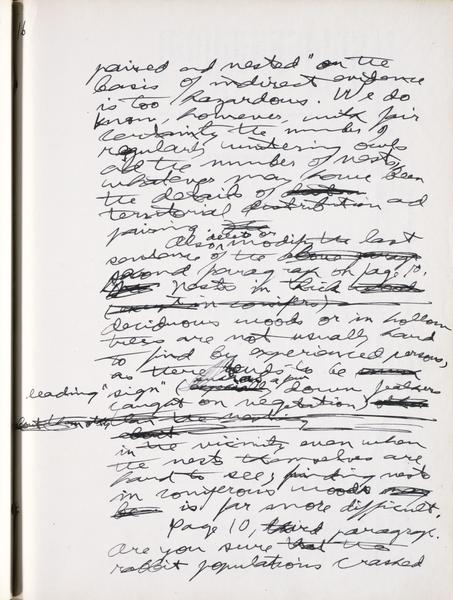 16
paired and nested" on the
basis of indirect evidence
is too hazardous. We do
know, however, with fair
certainty the number of
regularly wintering owls
and the number of nests,
whatever may have been
the details of
territorial distribution and
pairing.
Also, delete or modify the last
sentence of the
second paragraph on page 10.
nests in thick
deciduous woods or in hollow
trees are not usually hard
to find by experienced persons,
as there tends to be
leading "sign" ( down feathers
caught on vegetation)
in the vicinity even when
the nests themselves are
hard to see; finding nests
in coniferous woods
is far more difficult.
Page 10, third paragraph.
Are you sure that the
rabbit populations crashed